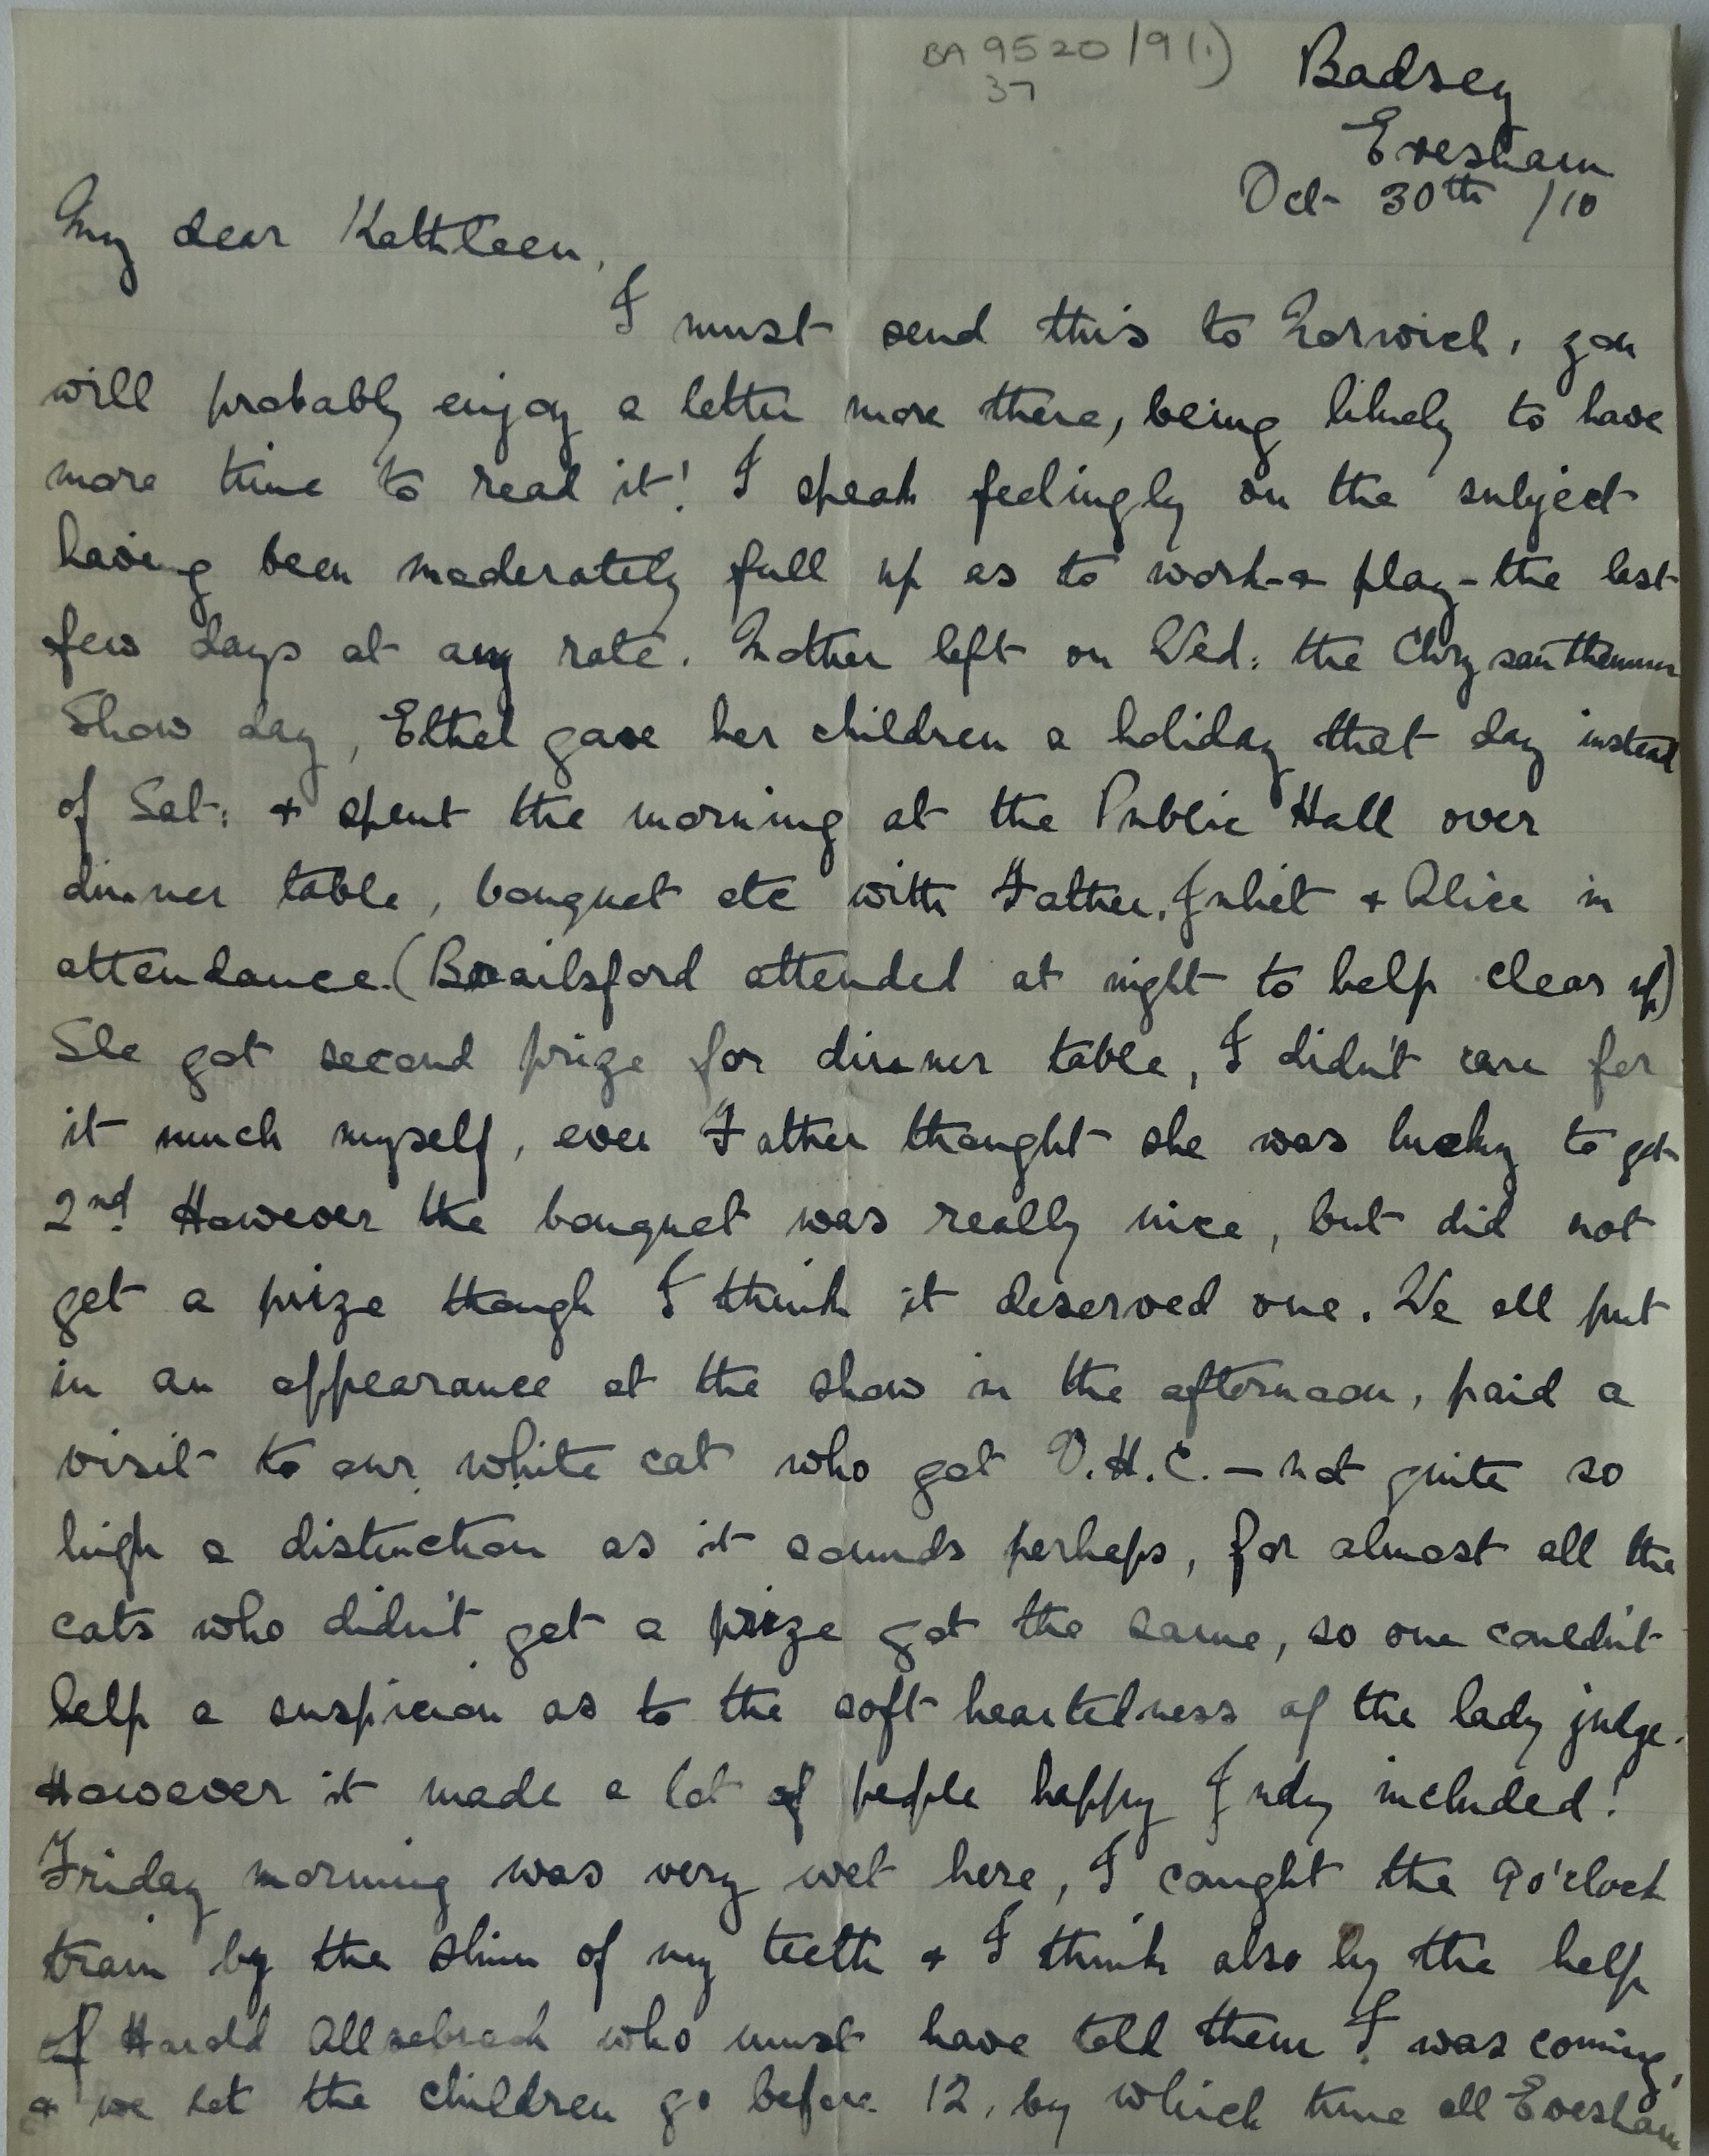 BA 9520/9(1)
37
Badsey
Evesham
Oct 30th /10
My dear Kathleen,
I must send this to Norwich, you
will probably enjoy a letter more there, being likely to have
more time to read it! I speak feelingly on the subject
having been moderately full up as to work - & play - the last
few days at any rate. Mother left on Wed: the Chrysanthemum
Show day, Ethel gave her children a holiday that day instead
of Sat: & spent the morning at the Public Hall over
dinner table, bouquet etc with Father, Juliet & Alice in
attendance. (Brailsford attended at night to help clear up)
She got second prize for dinner table, I didn't care for
it much myself, even Father thought she was lucky to get
2nd. However the bouquet was really nice, but did not
get a prize though I think it deserved one. We all put
in an appearance at the show in the afternoon, paid a
visit to our white cat who got V.H.C. - not quite so
high a distinction as it sounds perhaps, for almost all the
cats who didn't get a prize got the same, so one couldn't
help a suspicion as to the soft heartedness of the lady judge.
However it made a lot of people happy Judy included!
Friday morning was very wet here, I caught the 9 o'clock
train by the skin of my teeth & I think also by the help
of Harold Allsebrook who must have told them I was coming,
& we let the children go before 12, by which time all Evesham